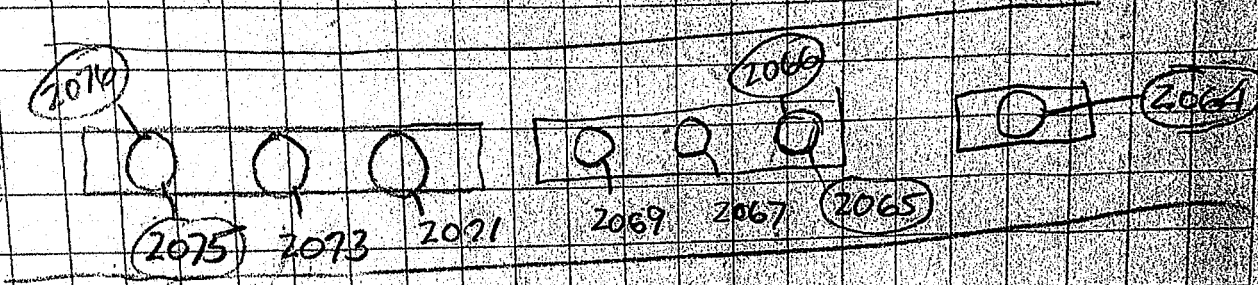 2076
2066
2064
2075
2073
2071
2069
2067
2065